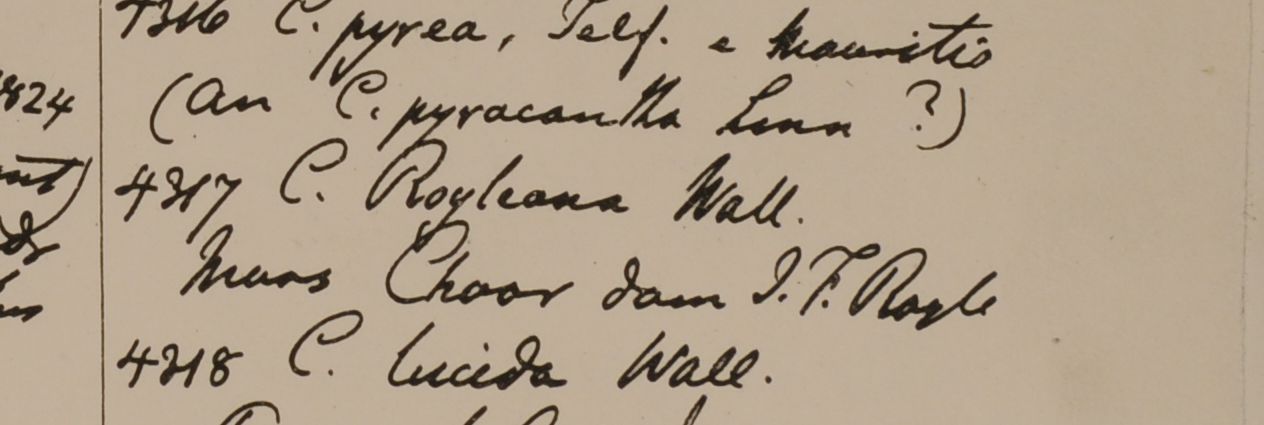 1824
4316 C. pyrea, Telf. e Mauritio
(An C. pyracantha Linn ?)
4317 C. Royleana Wall.
Mons Choor dom J. F. Royle
4318 C. lucida Wall.